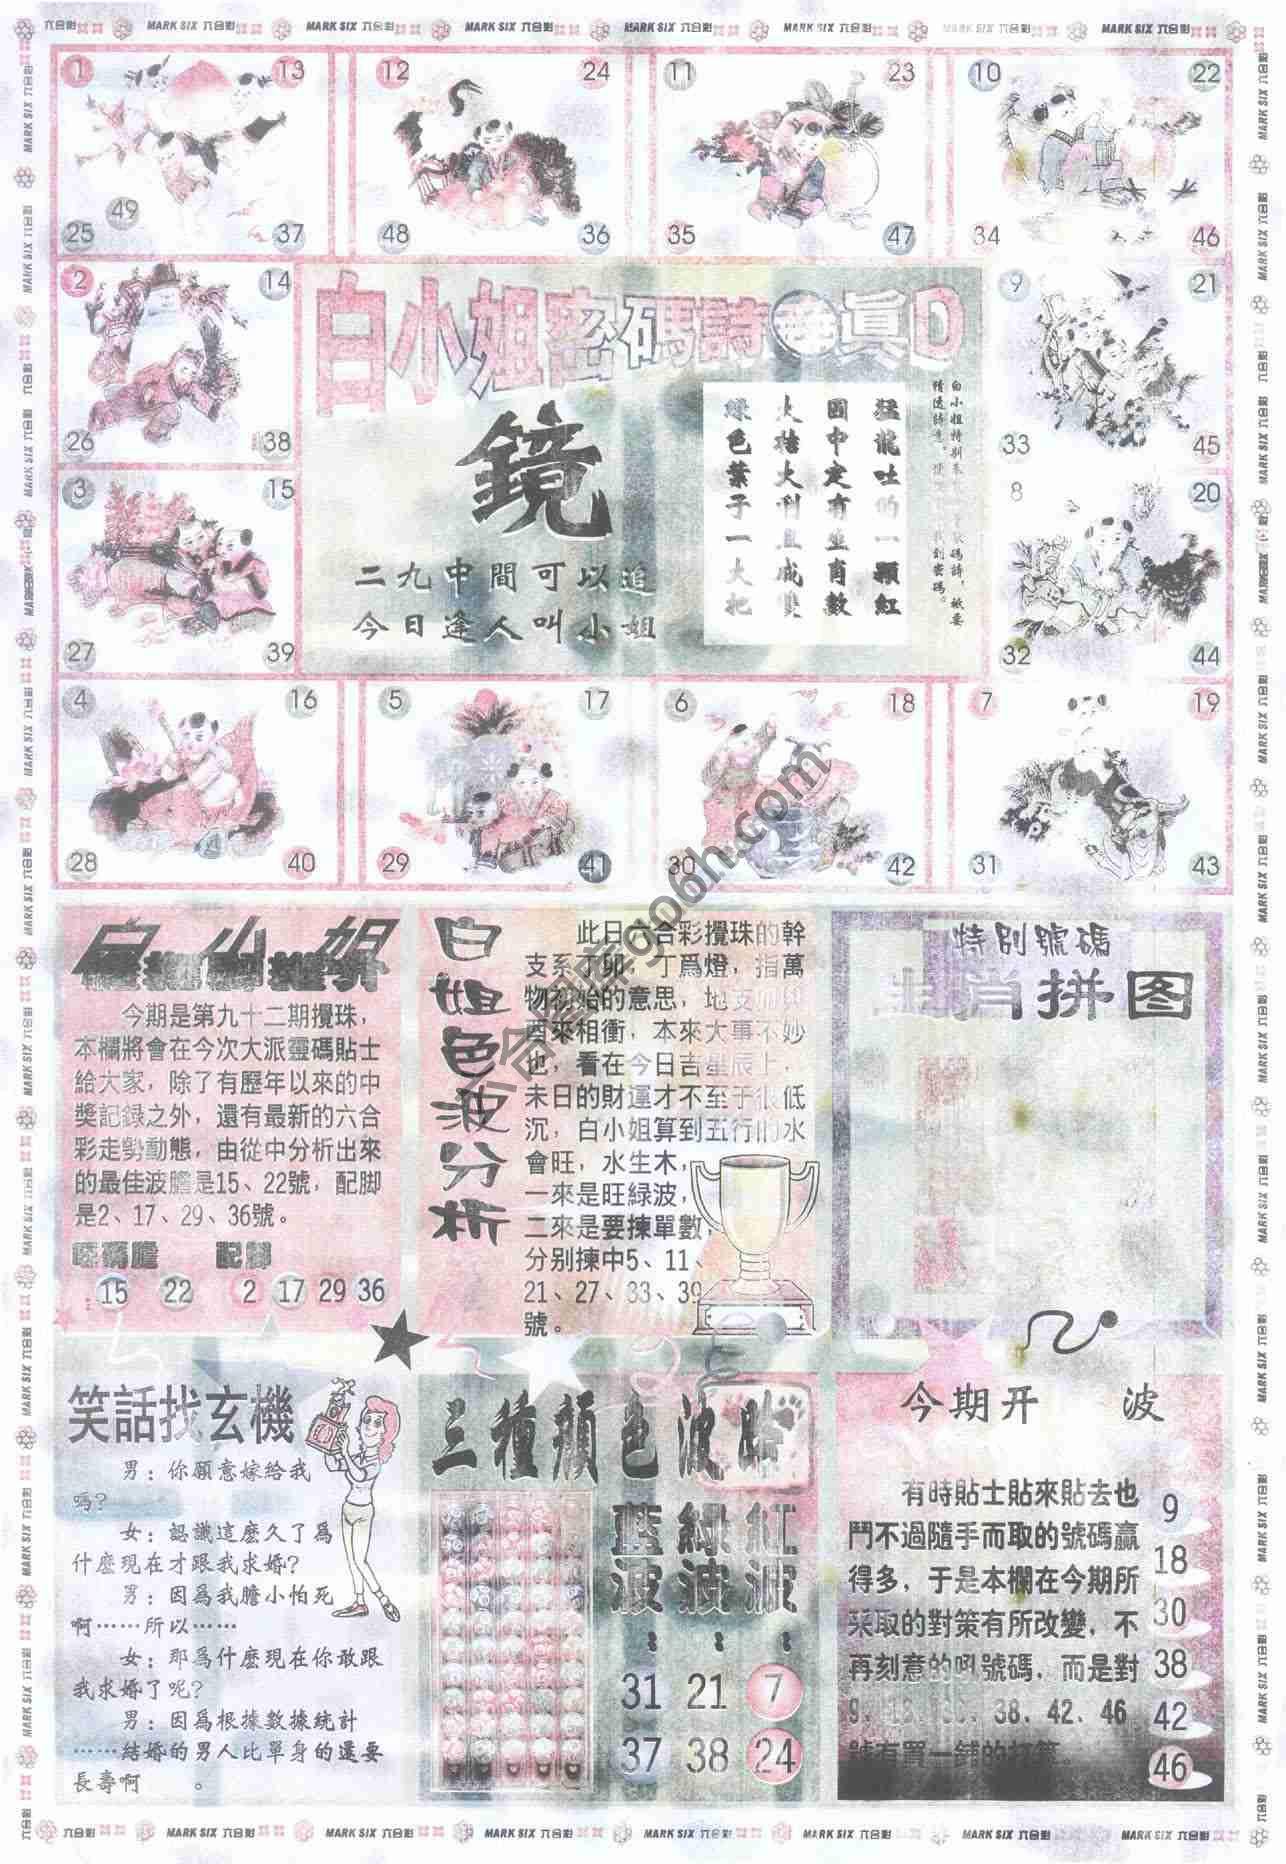 MARK SIX 六合彩
1 13
49
25 37
12 24
48 36
11 23
35 47
10 22
34 46
2 14
26 38
白小姐密碼詩 眞D
鏡
二九中間可以追
今日逢人叫小姐
猛龍吐的一顆紅
園中定有生肖數
綠色葉子一大把
9 21
33 45
3 15
27 39
8 20
32 44
4 16
28 40
5 17
29 41
6 18
30 42
7 19
31 43
白小姐
今期是第九十二期攪珠，
本欄將會在今次大派靈碼貼士
給大家，除了有歷年以來的中
獎記録之外，還有最新的六合
彩走勢動態，由從中分析出來
的最佳波膽是15、22號，配脚
是2、17、29、36號。
配脚
15 22 2 17 29 36
白姐色波分析
此日六合彩攪珠的幹
支系丁卯，丁爲燈，指萬
物初始的意思，地支
酉來相衝，本來大事不妙
也，看在今日吉星辰上，
未日的財運才不至于很低
沉，白小姐算到五行的水
會旺，水生木，
一來是旺緑波，
二來是要揀單數，
分别揀中5、11、
21、27、33、39
號。
特别號碼
生肖拼图
笑話找玄機
男：你願意嫁給我
嗎？
女：認識這麽久了爲
什麽現在才跟我求婚？
男：因爲我膽小怕死
啊……所以……
女：那爲什麽現在你敢跟
我求婚了呢？
男：因爲根據數據統計
……結婚的男人比單身的還要
長壽啊。
三種顏色波膽
藍波：31 37
緑波：21 38
紅波：7 24
今期开 波
有時貼士貼來貼去也
鬥不過隨手而取的號碼贏
得多，于是本欄在今期所
采取的對策有所改變，不
再刻意的吼號碼，而是對
38、42、46
號有買一鋪的打算。
9
18
30
38
42
46
六合图库go6h.com